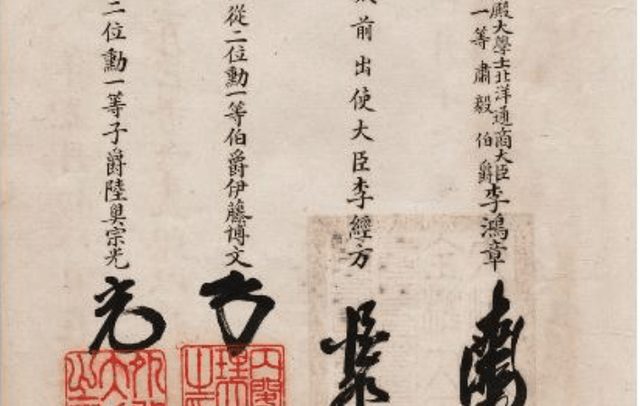 殿大學士北洋通商大臣
一等肅毅伯爵李鴻章
前出使大臣李經方
從二位勳一等伯爵伊藤博文
二位勳一等子爵陸奧宗光